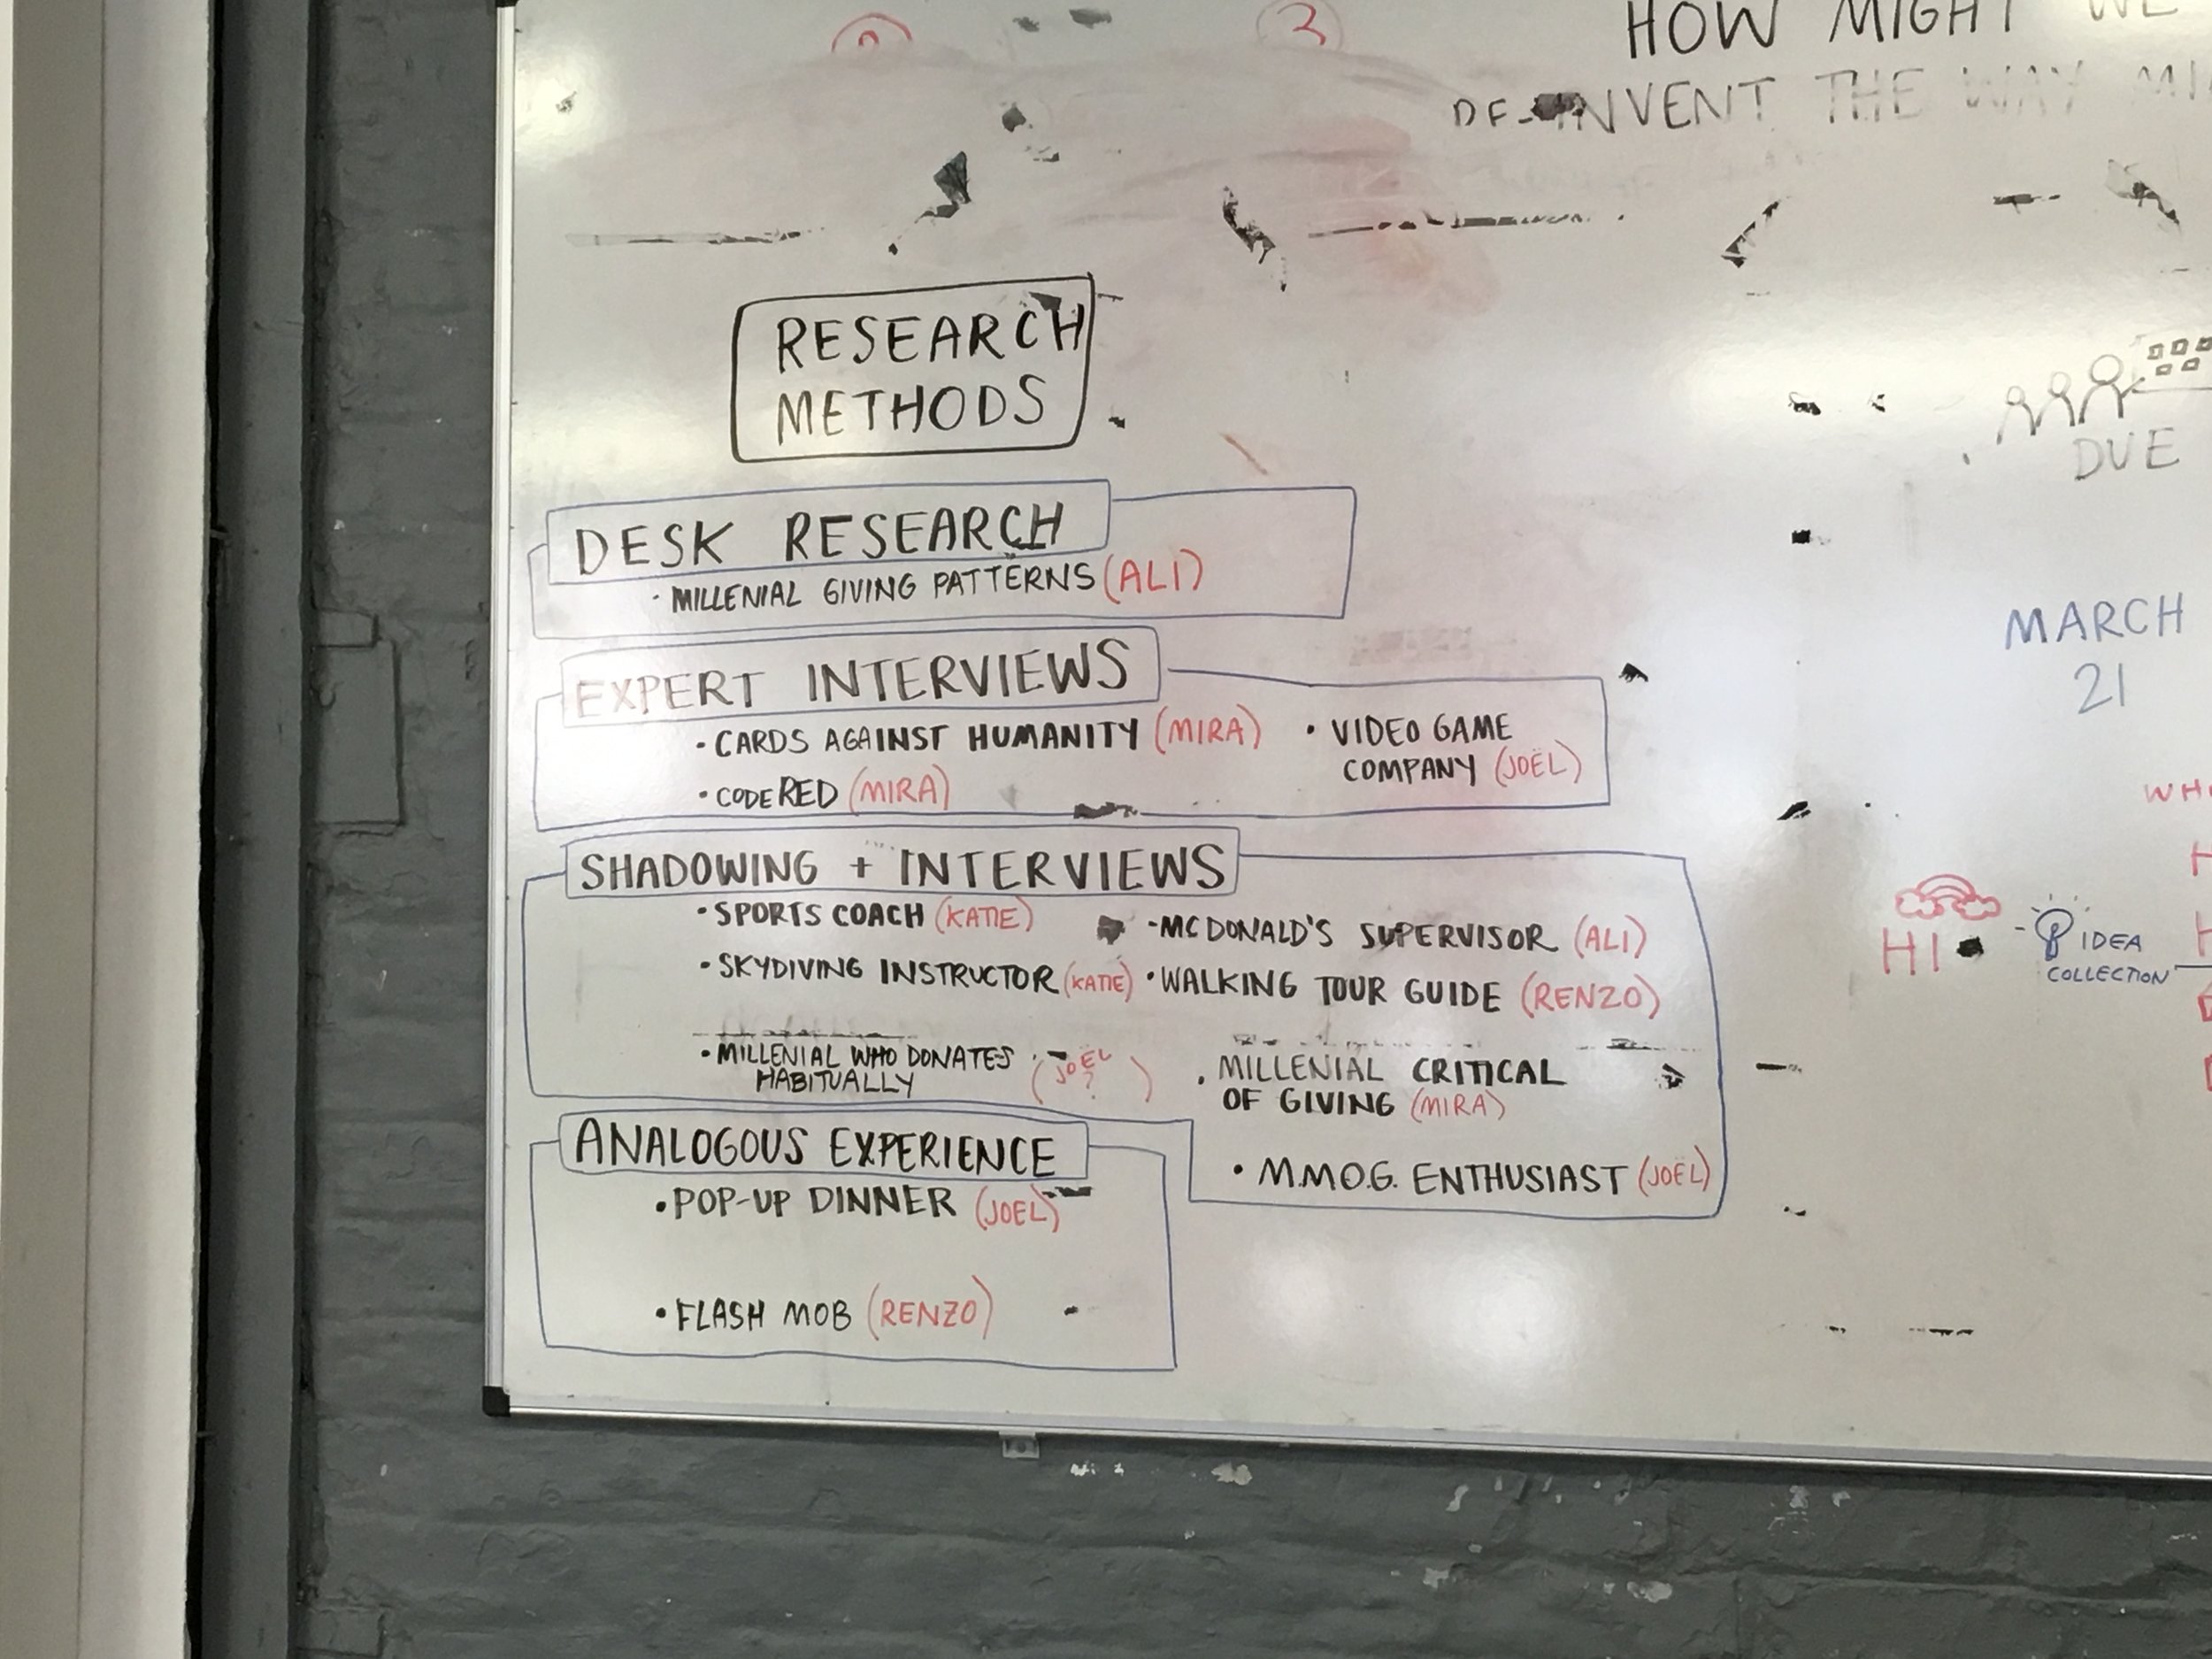 HOW MIGHT WE
INVENT THE WAY
RESEARCH
METHODS
DESK RESEARCH
· MILLENIAL GIVING PATTERNS (ALI)
EXPERT INTERVIEWS
• CARDS AGAINST HUMANITY (MIRA)
• CODE RED (MIRA)
• VIDEO GAME
COMPANY (JOËL)
SHADOWING + INTERVIEWS
• SPORTS COACH (KATIE)
• SKYDIVING INSTRUCTOR (KATIE)
• MILLENIAL WHO DONATES (JOËL
HABITUALLY ? )
- MCDONALD'S SUPERVISOR (ALI)
• WALKING TOUR GUIDE (RENZO)
• MILLENIAL CRITICAL
OF GIVING (MIRA)
• M.M.O.G. ENTHUSIAST (JOËL)
ANALOGOUS EXPERIENCE
• POP-UP DINNER (JOEL)
• FLASH MOB (RENZO)
DUE
MARCH
21
HI
IDEA
COLLECTION